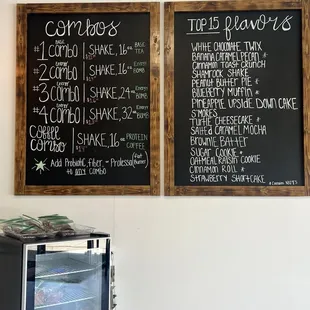 COMBOS
#1 COMBO | SHAKE, 16 oz BASE TEA
#2 COMBO | SHAKE, 16 oz ENERGY BOMB
#3 COMBO | SHAKE, 24 oz ENERGY BOMB
#4 COMBO | SHAKE, 32 oz ENERGY BOMB
COFFEE COMBO | SHAKE, 16 oz PROTEIN COFFEE
ADD PROBIOTIC, FIBER, OR PROLESSA
TO ANY COMBO
TOP 15 flavors
WHITE CHOCOLATE TWIX
BANANA CARAMEL PECAN
CINNAMON TOAST CRUNCH
SHAMROCK SHAKE
PEANUT BUTTER PIE *
BLUEBERRY MUFFIN *
PINEAPPLE UPSIDE DOWN CAKE
S'MORES
TURTLE CHEESECAKE *
SALTED CARAMEL MOCHA
BROWNIE BATTER
SUGAR COOKIE *
OATMEAL RAISIN COOKIE
CINNAMON ROLL *
STRAWBERRY SHORTCAKE
* CONTAINS NUTS